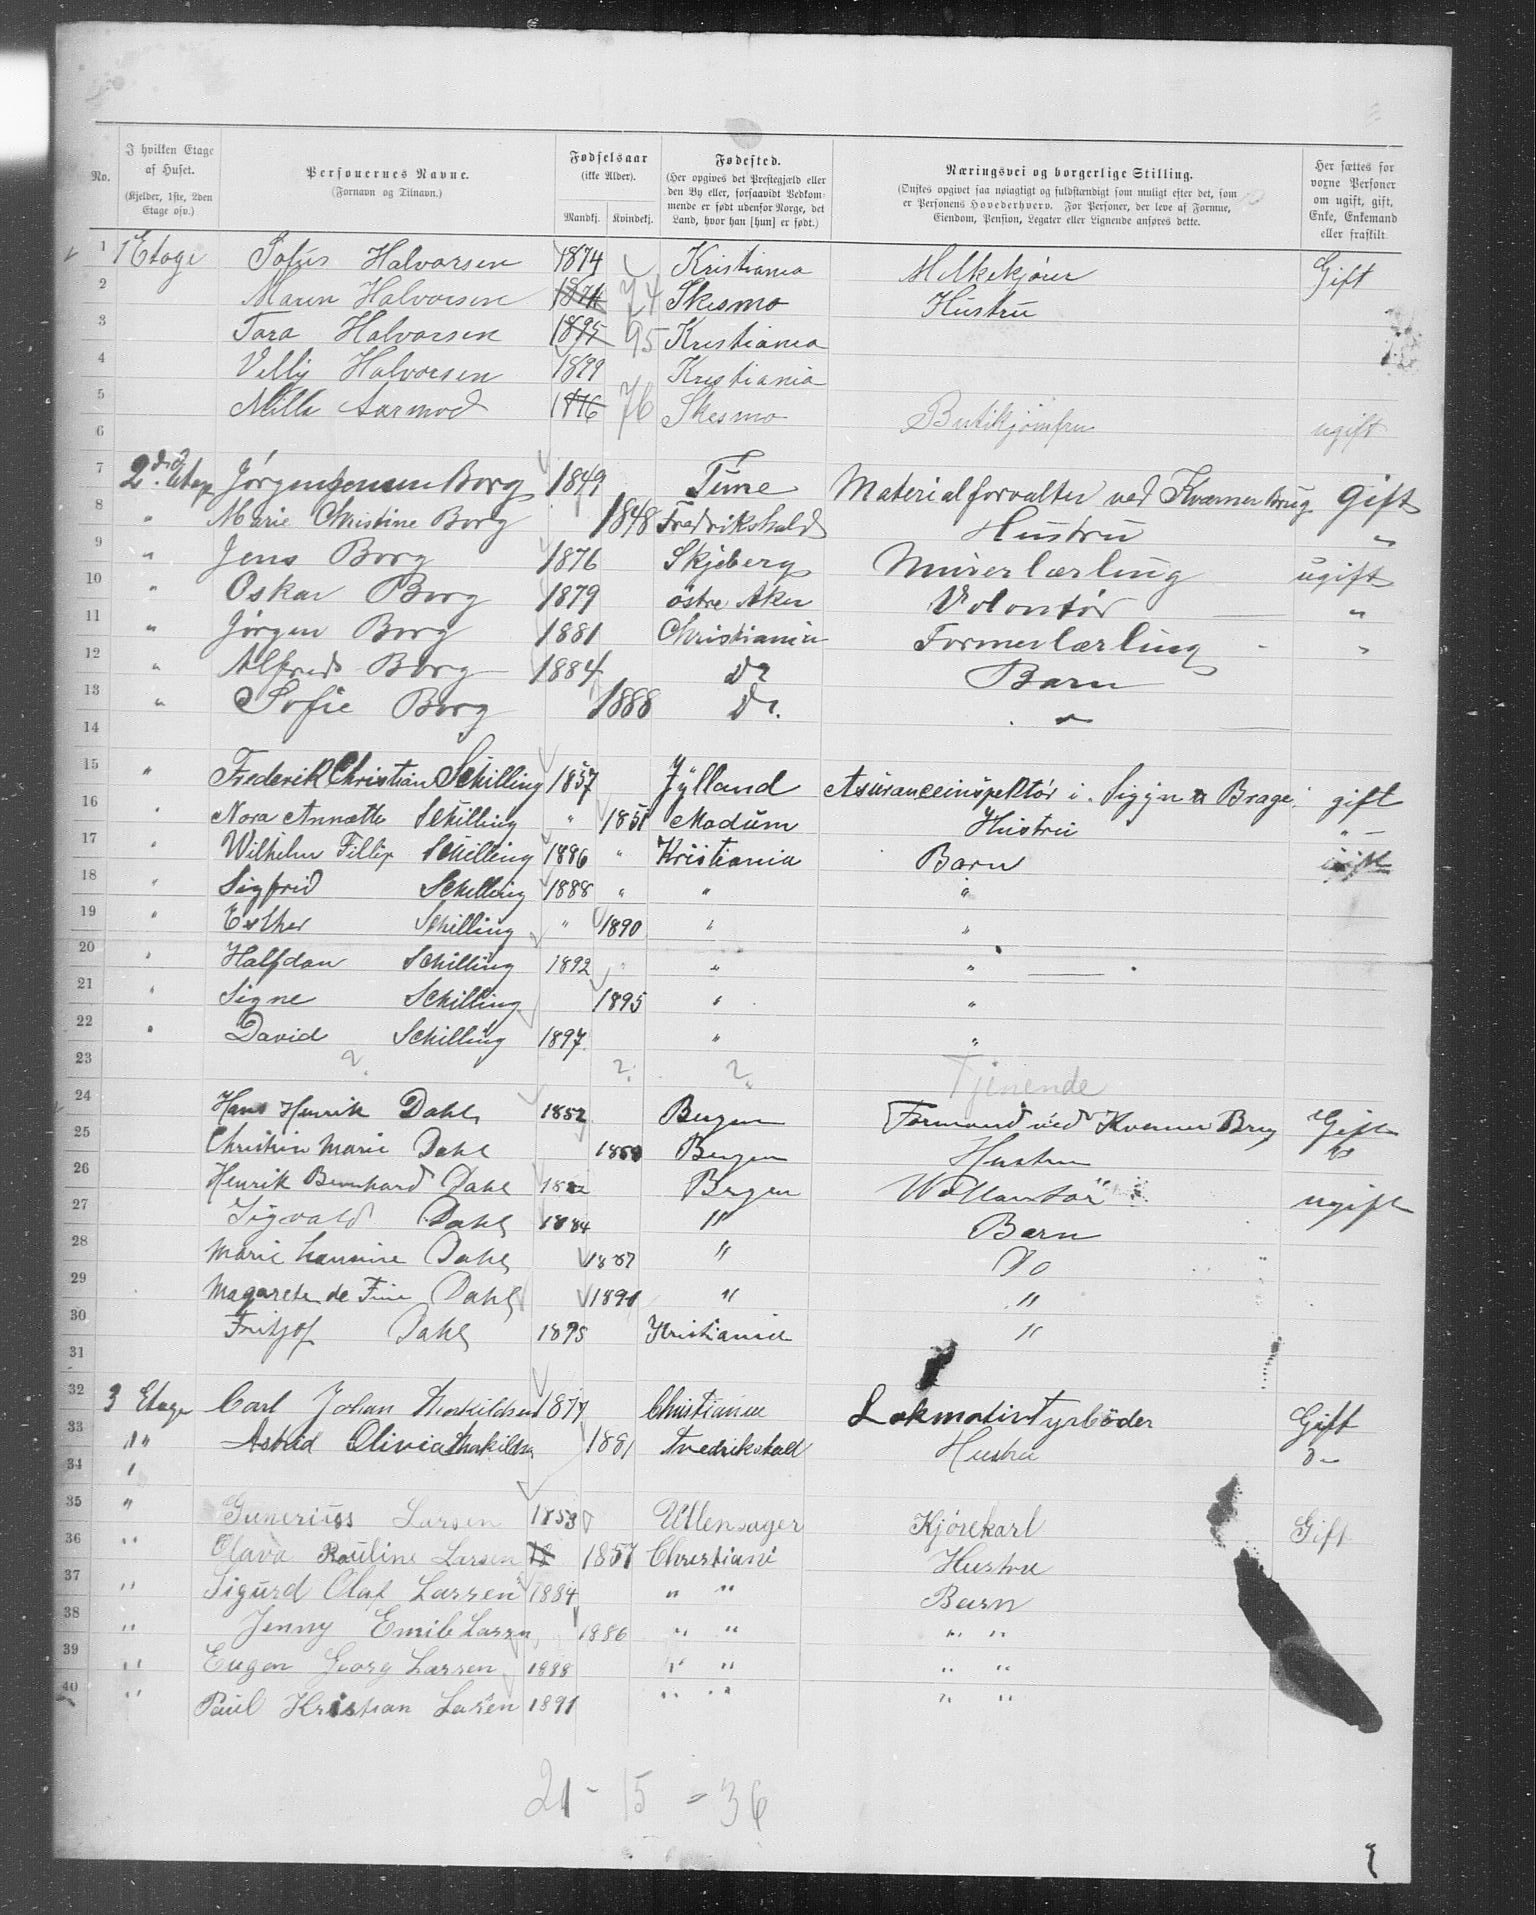 No. | I hvilken Etage af Huset. (Kjelder, 1ste, 2den Etage osv.) | Personernes Navne. (Fornavn og Tilnavn.) | Fødselsaar (ikke Alder). Mandkj. Kvindekj. | Fødested. (Her opgives det Prestegjæld eller den By eller, forsaavidt Vedkommende er født udenfor Norge, det Land, hvor han [hun] er født.) | Næringsvei og borgerlige Stilling. (Ønskes opgivet saa nøiagtigt og fuldstændigt som muligt efter det, som er Personens Hovederhverv. For Personer, der leve af Formue, Eiendom, Pension, Legater eller Lignende anføres dette. | Her sættes for voxne Personer om ugift, gift, Enke, Enkemand eller fraskilt.
1 1 Etage Sofus Halvorsen 1874 Kristiania Melkekjører Gift
2 Maren Halvorsen 1874 74 Skesmo Hustru
3 Tora Halvorsen 1895 95 Kristiania
4 Villy Halvorsen 1899 Kristiania
5 Milla Aarmod 1876 76 Skesmo Butikjomfru ugift
6
7 2den Etage Jørgen Jensen Borg 1849 Tune Materialforvalter ved Kværner Brug Gift
8 " Marie Christine Borg 1848 Fredrikshald Hustru "
9 " Jens Borg 1876 Skjeberg Murerlærling ugift
10 " Oskar Borg 1879 østre Aker Volontør "
11 " Jørgen Borg 1881 Christiania Formerlærling "
12 " Alfred Borg 1884 Do Barn
13 " Sofie Borg 1888 Do. "
14
15 " Frederik Christian Schilling 1857 Jylland Asuranceinspektør i Sigyn & Brage gift
16 " Nora Annette Schilling " 1851 Modum Hustru "
17 " Wilhelm Fillip Schilling 1886 " Kristiania Barn ugift
18 " Sigfrid Schilling 1888 " " "
19 " Esther Schilling " 1890 " "
20 " Halfdan Schilling 1892 " " "
21 " Signe Schilling 1895 " "
22 " David Schilling 1897 " "
23 ? ? ? Tjenende
24 Hans Henrik Dahl 1852 Bergen Formand ved Kverner Brug Gift
25 Christin Marie Dahl Bergen Hustru
26 Henrik Bernhard Dahl Bergen Wollantør ugift
27 Sigvald Dahl 1884 " Barn
28 Marie Dahl 1887 " Do
29 Magarete de Fine Dahl 1891 " "
30 Fritjof Dahl 1898 Kristiania "
31
32 3 Etage Carl Johan Thorkildsen 1877 Christiania Lokmotivfyrbøder Gift
33 " Astrid Olivia Thorkildsn 1881 Fredrikstad Hustru Do
34 "
35 " Gunerius Larsen 1853 Ullensager Kjørekarl Gift
36 " Olava Pauline Larsen 18 1857 Christiani Hustru
37 " Sigurd Olaf Larsen 1884 " " Barn
38 " Jenny Emilie Larsn 1886 " " " "
39 " Eugen Georg Larsen 1888 " " " "
40 " Paul Kristian Larsen 1891 " " " "
21 - 15 = 36